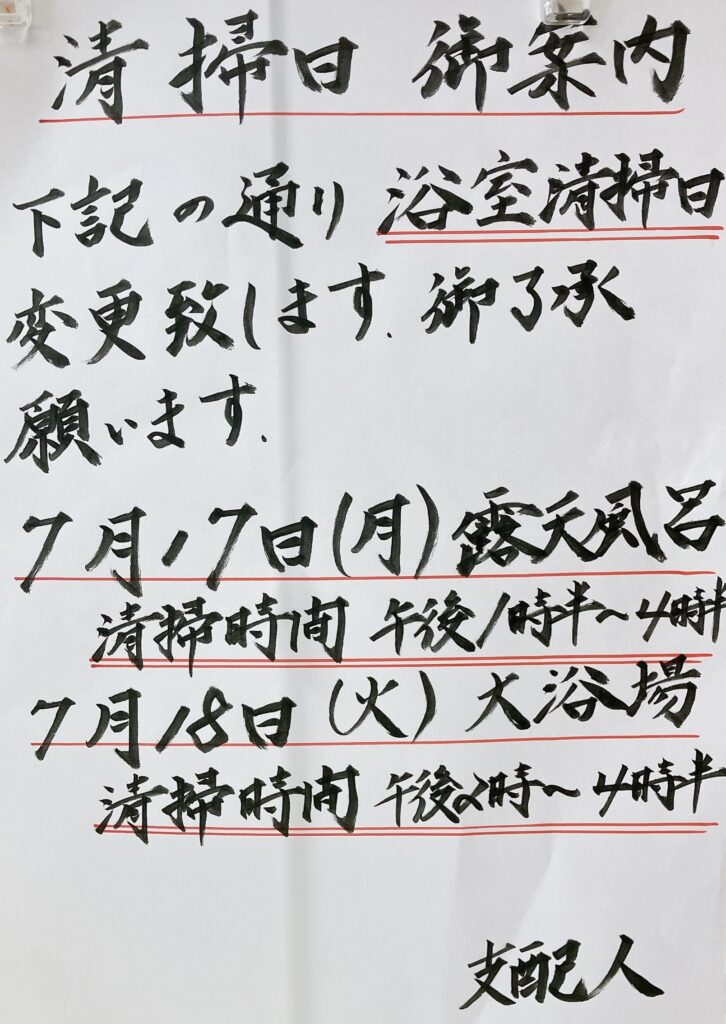 清掃日 御案内
下記の通り 浴室清掃日
変更致します. 御了承
願います.
7月17日(月)露天風呂
清掃時間 午後1時半~4時半
7月18日(火) 大浴場
清掃時間 午後2時~4時半
支配人